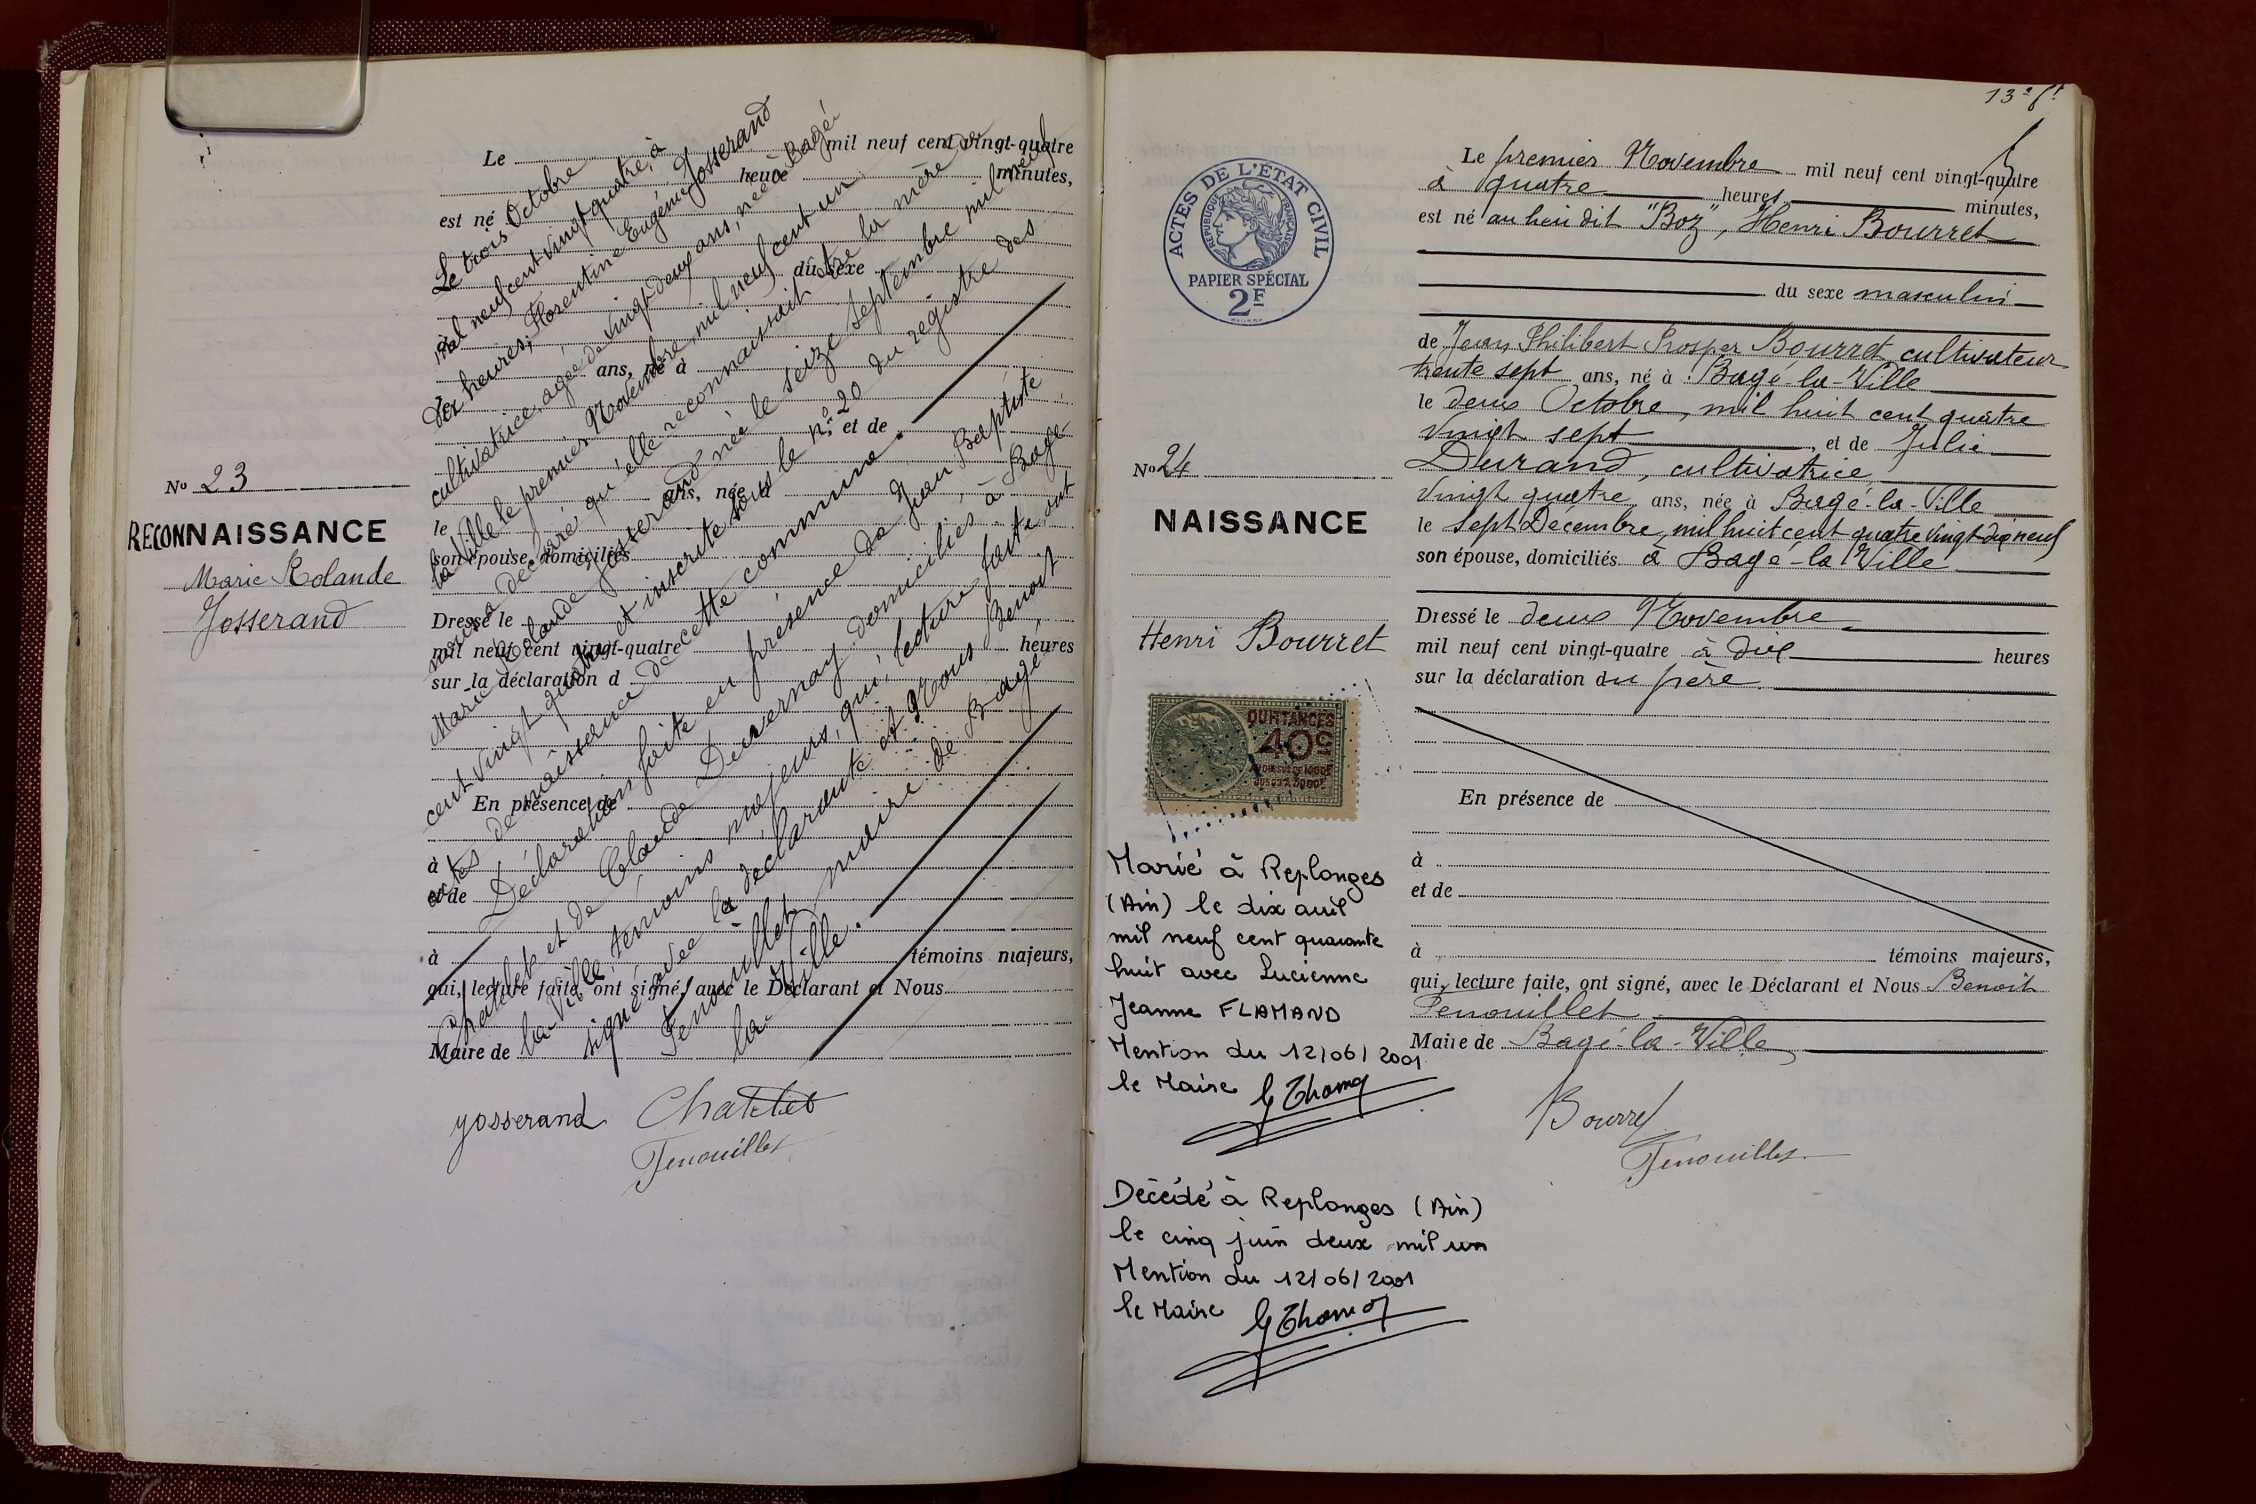 Le mil neuf cent vingt-quatre
à heure minutes,
est né
du sexe
ans, né à
et de
ans, née à
le
son épouse, domiciliés
Dressé le
mil neuf cent vingt-quatre heures
sur la déclaration d
En présence de
à
et de
à témoins majeurs,
qui, lecture faite, ont signé, avec le Déclarant et Nous
Maire de
Nº 23
RECONNAISSANCE
Marie Rolande
Josserand
Le trois Octobre
mil neuf cent vingt quatre, à
dix heures, Florentine Eugénie Josserand
cultivatrice, agée de vingt deux ans, née à Bagé
la Ville le premier Novembre, mil neuf cent un,
nous a déclaré qu'elle reconnaissait être la mère de
Marie Rolande Josserand née le seize septembre mil neuf
cent vingt quatre et inscrite sous le nº 20 du registre des
actes de naissance de cette commune.
Déclaration faite en présence de Jean Baptiste
Chatelet et de Claude Duvernay domiciliés à Bagé
la Ville témoins majeurs, qui, lecture faite, ont
signé avec la déclarante et Nous Benoit
Fenouillet, maire de Bagé
la Ville.
yosserand Chatelet
Fenouillet
13e ft
ACTES DE L'ÉTAT CIVIL
RÉPUBLIQUE FRANÇAISE
PAPIER SPÉCIAL
2F
Nº 24
NAISSANCE
Henri Bourret
QUITTANCES
40c
Marié à Replonges
(Ain) le dix avril
mil neuf cent quarante
huit avec Lucienne
Jeanne FLAMAND
Mention du 12/06/2001
le Maire G Thomas
Décédé à Replonges (Ain)
le cinq juin deux mil un
Mention du 12/06/2001
le Maire G Thomas
Le premier Novembre mil neuf cent vingt-quatre
à quatre heures minutes,
est né au lieu dit "Boz", Henri Bourret
du sexe masculin
de Jean Philibert Prosper Bourret, cultivateur
trente sept ans, né à Bagé-la-Ville
le deux Octobre, mil huit cent quatre
vingt sept et de Julie
Durand, cultivatrice,
vingt quatre ans, née à Bagé-la-Ville
le sept Décembre, mil huit cent quatre vingt dix neuf
son épouse, domiciliés à Bagé-la-Ville
Dressé le deux Novembre
mil neuf cent vingt-quatre à dix heures
sur la déclaration du père
En présence de
à
et de
à témoins majeurs,
qui, lecture faite, ont signé, avec le Déclarant et Nous Benoit
Fenouillet
Maire de Bagé-la-Ville
Bourret
Fenouillet